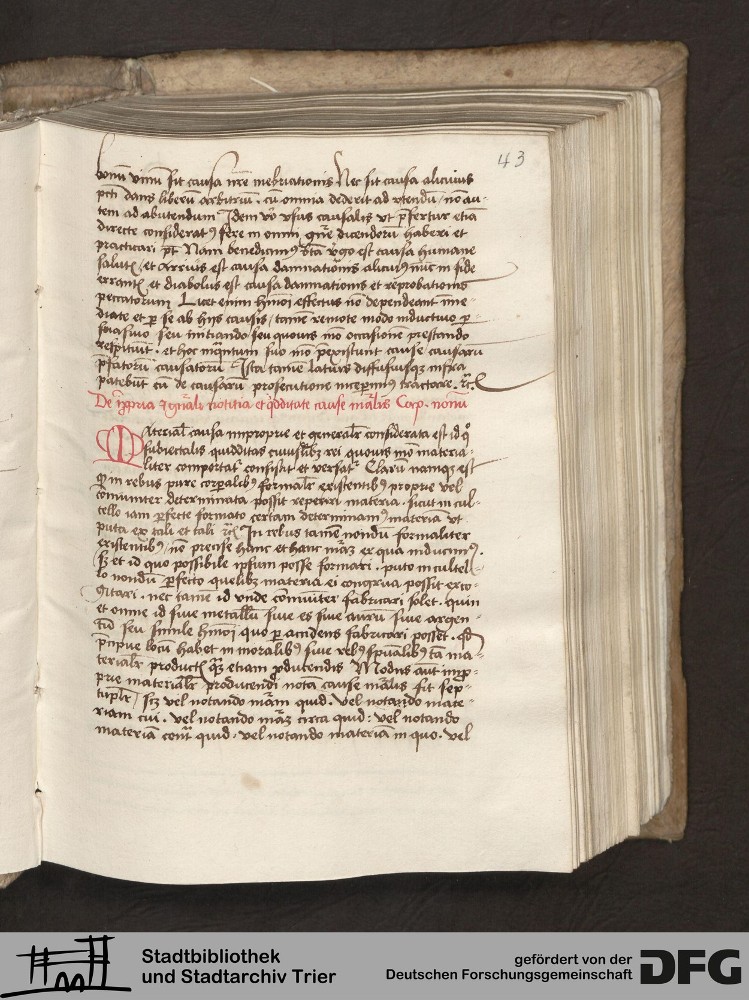 43
bonū vinū sit causa nr̄e inebriationis Nec sit causa alicuius
pctī dans liberū arbitriū . cū omnia dederit ad vtendū / nō au-
tem ad abutendum Idem vō vsus causalis vt p̄fertur etiā
directe considerat9 fere in omni gn̄e dicendorū haberi et
practicari pt̄ Nam benedicim9 bt̄a v̓go est causa humane
salutꝭ / et Arrius est causa damnatiōnis alicui9 nūc in fide
errantꝭ et diabolus est causa damnationis et reprobationis
peccatorum Licet enim hmōi effectus nō dependeant īme-
diate et ꝑ se ab hijs causis / tamē remote modo inductiuo ꝑ-
suasiuo seu initiando / seu quouis mō occasionē prestando
et hoc inq̄ntum suo mō p̄existunt cause causarū
p̄fatorū causatorū Ista tamē latius diffusiusqꝫ infra
patebūt cū de causarū prosecutione inceperim9 tractare . ⁊cͣ
De īp̄pria ⁊ gn̄ali notitia et q̄dditate cause mālis Cap. nonū
Materialꝭ causa improprie et generalr̄ considerata est id qͦ
subiectalis quidditas cuiuslibꝫ rei quouis mō materia-
liter comportatͬ consistit et versatͬ Clarū namqꝫ est
qͦ in rebus pure corꝑalibꝫ formalr̄ existentibꝫ proprie vel
cōmuniter determinata possit reperiri materia . sicut in cul-
tello iam ꝑfecte formato certam determinam9 materiā vt
puta ex tali et tali ⁊cͣ In rebus tamē nondū formaliter
existentibꝫ / nō precise hanc et hanc mām ex qua inducim9 .
sꝫ et id quo possibile ipsum posse formari . puto in cultel-
lo nondū ꝑfecto quelibꝫ materia ei congrua possit exco-
gitari . nec tamē id vnde cōmuniter fabricari solet . quin
et omne id siue metallū siue es siue aurū siue argen-
tū seu simile hmōi quo ꝑ accidens fabricari posset . qd
p̄cipue locū habet in moralibꝫ siue rebꝫ sp̄ualibꝫ tā ma-
terialr̄ productꝭ qͣꝫ etiam ꝓducendis Modus aut̄ imp̄-
prie materialr̄ producendi notā cause mālis sit sep-
tuplr̄ / scꝫ vel notando mām quid . vel notando mate-
riam cui . vel notando mām circa quid : vel notando
materiā cont̄ quid . vel notando materiā in quo . vel
Stadtbibliothek
und Stadtarchiv Trier
gefördert von der
Deutschen Forschungsgemeinschaft
DFG